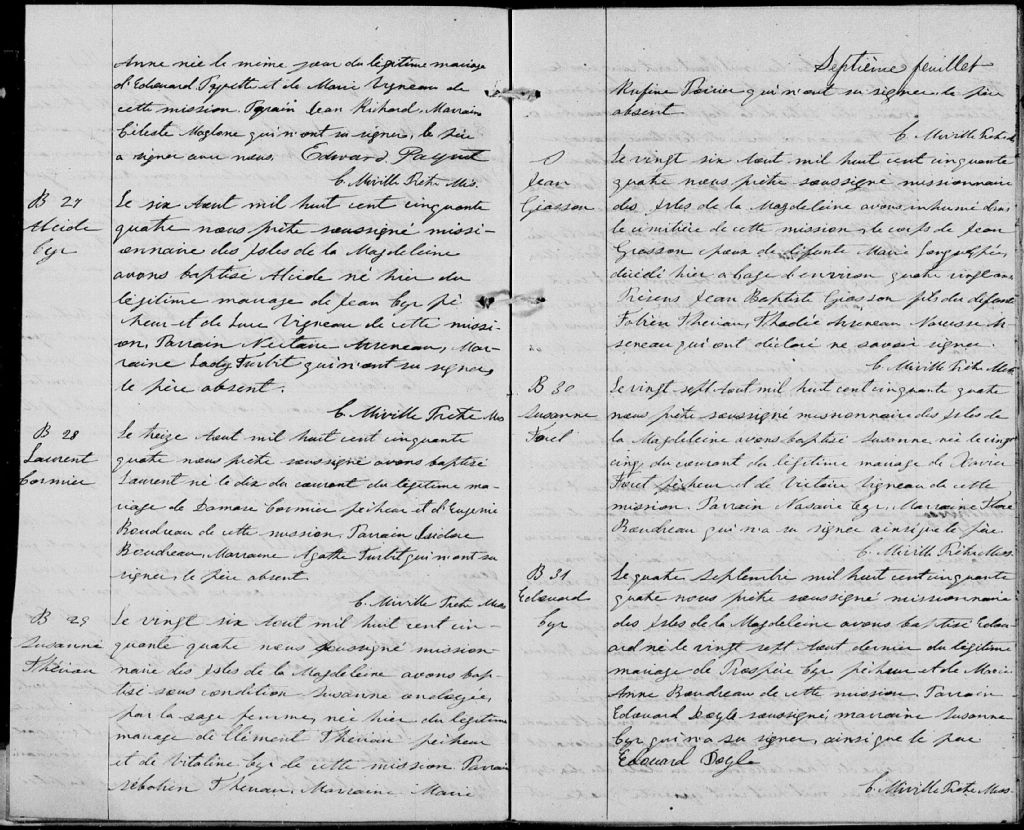 Anne née le même jour du légitime mariage
d'Edouard Payette et de Marie Vigneau de
cette mission. Parain Jean Richard, Marraine
Céleste Maglone qui n'ont su signer, le père
a signer avec nous. Edward Payut
C. Miville Ptêtre Mis.
B 27
Alcide
Cyr
Le six aout mil huit cent cinquante
quatre nous prêtre soussigné missi-
onnaire des Isles de la Magdeleine
avons baptisé Alcide né hier du
légitime mariage de Jean Cyr pê
cheur et de Luce Vigneau de cette missi-
on, Parrain Nectaire Arseneau, Mar-
raine Lady Turbit qui n'ont su signer,
le père absent.
C. Miville Prêtre Miss
B 28
Laurent
Cormier
Le treize aout mil huit cent cinquante
quatre nous prêtre soussigné avons baptisé
Laurent né le dix du courant du légitime ma-
riage de Damase Cormier pêcheur et d'Eugenie
Boudreau de cette mission, Parrain Isidore
Boudreau, Marraine Agathe Turbit qui n'ont su
signer, le père absent.
C. Miville Prêtre Miss
B 29
Susanne
Thériau
Le vingt six aout mil huit cent cin-
quante quatre nous soussigné mission-
naire des Isles de la Magdeleine avons bap-
tisé sous condition Susanne ondoyée,
par la sage femme, née hier du légitime
mariage de Clément Thériau pêcheur
et de Vitaline Cyr de cette mission. Parrain
Sébatien Thériau, Marraine Marie
Septième feuillet
Rufine Poirier qui n'ont su signer, le père
absent.
C. Miville Prêtre
S
Jean
Giasson
Le vingt six aout mil huit cent cinquante
quatre nous prêtre soussigné missionnaire
des Isles de la Magdeleine avons inhumé dans
le cimitière de cette mission, le corps de Jean
Giasson époux de défunte Marie
décédé hier a l'age d'environ quatre vingt ans
Présens Jean Baptiste Giasson fils du défunt
Fabien Thériau, Thadée Arseneau, Narcisse Ar-
seneau qui ont déclaré ne savoir signer.
C. Miville Prêtre Miss
B 30
Susanne
Turet
Le vingt sept aout mil huit cent cinquante quatre
nous prêtre soussigné missionnaire des Isles de
la Magdeleine avons baptisé Susanne née le vingt
cinq du courant du légitime mariage de Xavier
Turet pêcheur et de Victoire Vigneau de cette
mission, Parrain Nasaire Cyr, Marraine Flore
Boudreau qui n'a su signer ainsi que le père
C. Miville Prêtre Miss.
B 31
Edouard
Cyr
Le quatre Septembre mil huit cent cinquante
quatre nous prêtre soussigné missionnaire
des Isles de la Magdeleine avons baptisé Edou-
ard né le vingt sept aout dernier du légitime
mariage de Prospère Cyr pêcheur et de Marie
Anne Boudreau de cette mission, Parrain
Edouard Doyle soussigné, marraine Susanne
Cyr qui n'a su signer, ainsi que le père
Edouard Doyle
C. Miville Prêtre Miss.